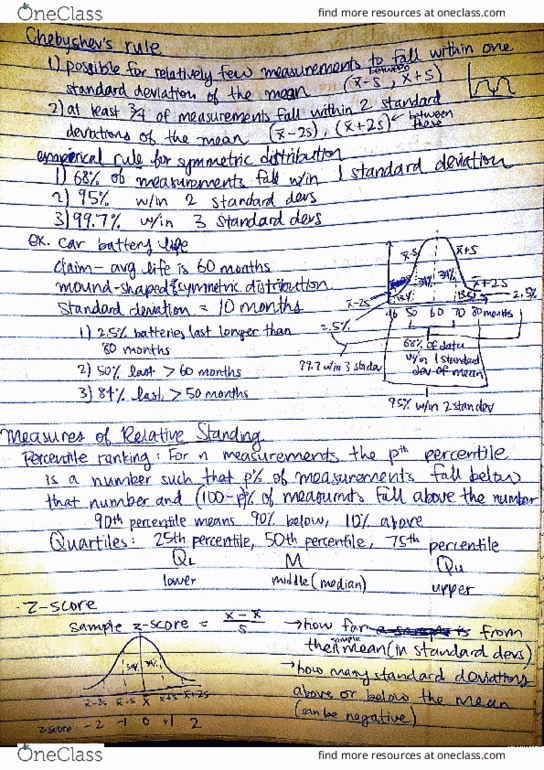 OneClass
find more resources at oneclass.com
Chebyshev's rule
1) possible for relatively few measurements to fall within one
standard deviation of the mean between (x̄-s, x̄+s)
2) at least 3/4 of measurements fall within 2 standard
deviations of the mean (x̄-2s), (x̄+2s) ← between these
emperical rule for symmetric distribution
1) 68% of measurements fall w/in 1 standard deviation
2) 95% w/in 2 standard devs
3) 99.7% w/in 3 standard devs
ex. car battery life
claim - avg life is 60 months
mound-shaped & symmetric distribution
standard deviation = 10 months
1) 2.5% batteries last longer than
80 months
2) 50% last > 60 months
3) 84% last > 50 months
x̄-s
x̄+s
34%
34%
x̄+2s
x̄-2s
13.5%
2.5%
2.5%
50 60 70 80 months
68% of data
w/in 1 standard
dev of mean
99.7 w/in 3 st dev
95% w/in 2 stan dev
Measures of Relative Standing
Percentile ranking: For n measurements the pth percentile
is a number such that p% of measurements fall below
that number and (100-p)% of measurmts fall above the number
90th percentile means 90% below, 10% above
Quartiles: 25th percentile, 50th percentile, 75th percentile
QL M QU
lower middle (median) upper
· Z-score
sample z-score = x - x̄ / s
→ how far from
the sample mean (in standard devs)
→ how many standard deviations
above or below the mean
(can be negative)
34% 34%
x̄-2s x̄-s x̄ x̄+s x̄+2s
z-score -2 -1 0 +1 2
OneClass
find more resources at oneclass.com